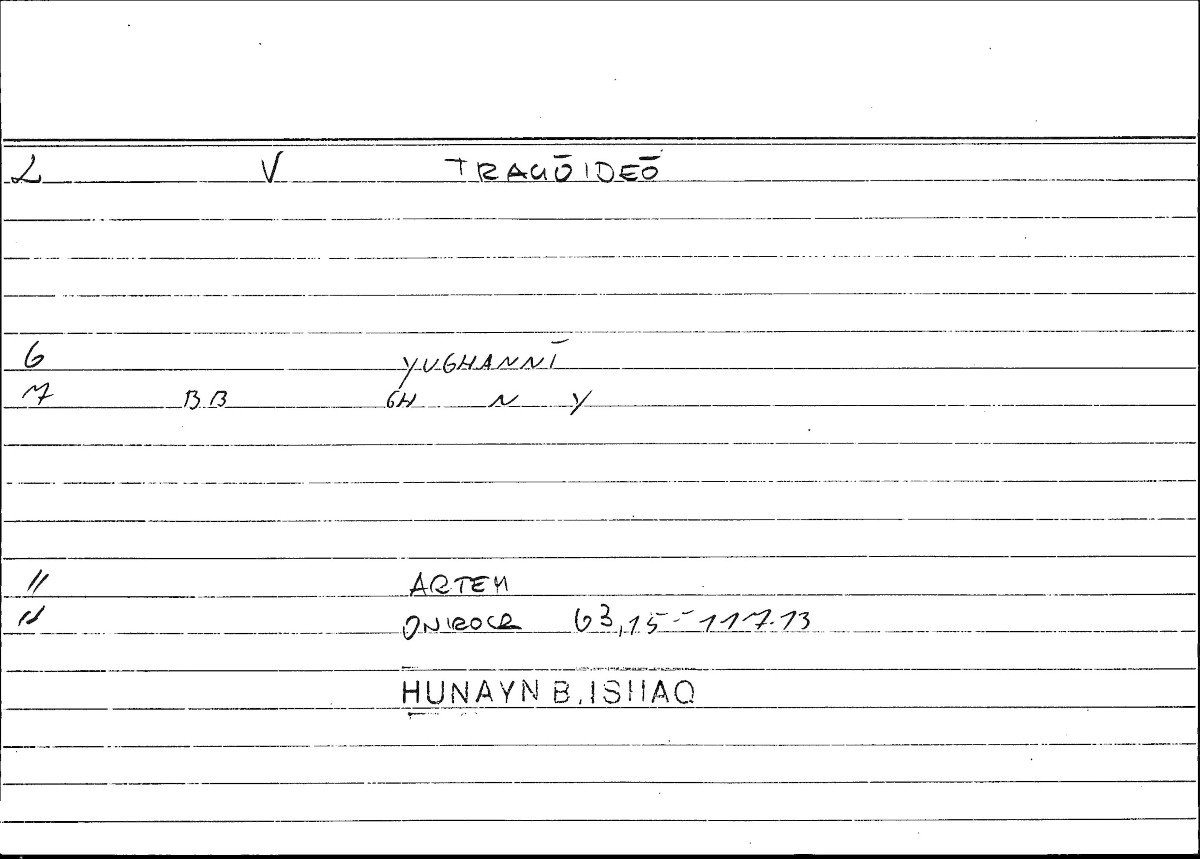 2 V TRAGŌIDEŌ
6 YUGHANNĪ
7 BB GH N Y
11 ARTEM
12 ONIROCR 63,15-117.13
HUNAYN B. ISHAQ